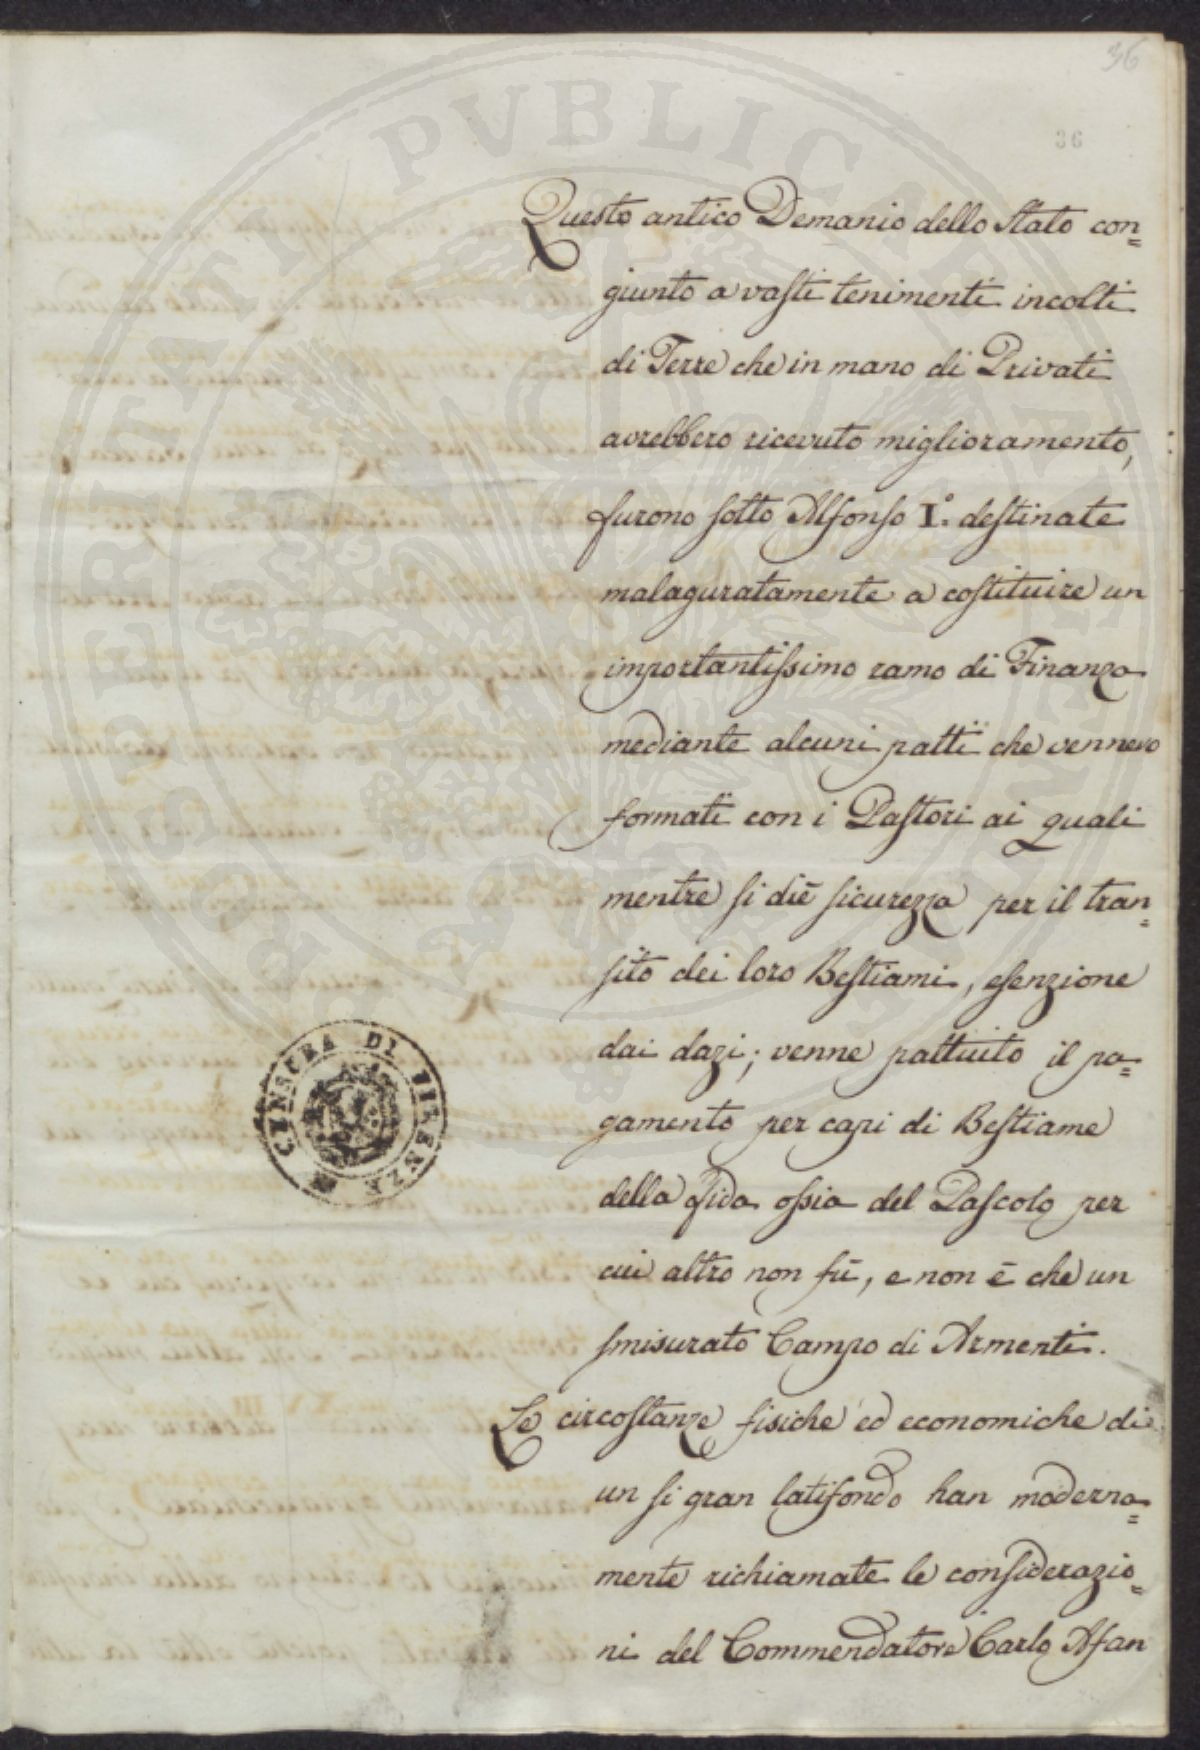 36
36
Questo antico Demanio dello Stato con=
giunto a vasti tenimenti incolti
di Terre che in mano di Privati
avrebbero ricevuto miglioramento,
furono sotto Alfonso I.° destinate
malaguratamente a costituire un
importantissimo ramo di Finanza
mediante alcuni patti che vennero
formati con i Pastori ai quali
mentre si diè sicurezza per il tran=
sito dei loro Bestiami, esenzione
dai dazi; venne pattuito il pa=
gamento per capi di Bestiame
della fida ossia del Pascolo per
cui altro non fù, e non è che un
smisurato Campo di Armenti.
Le circostanze fisiche ed economiche di
un si gran latifondo han moderna=
mente richiamate le considerazio=
ni del Commendatore Carlo Afan
CENSURA DI FIRENZE
PROSPERITATI PVBLICAE